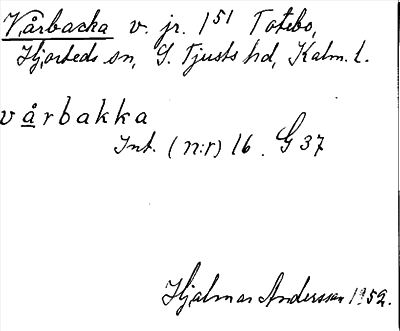 Vårbacka v. jr. 1⁵¹ Totebo,
Hjorteds sn, S. Tjusts hd, Kalm. l.
vårbakka
Int. (n:r) 16. G 37
Hjalmar Andersson 1952.